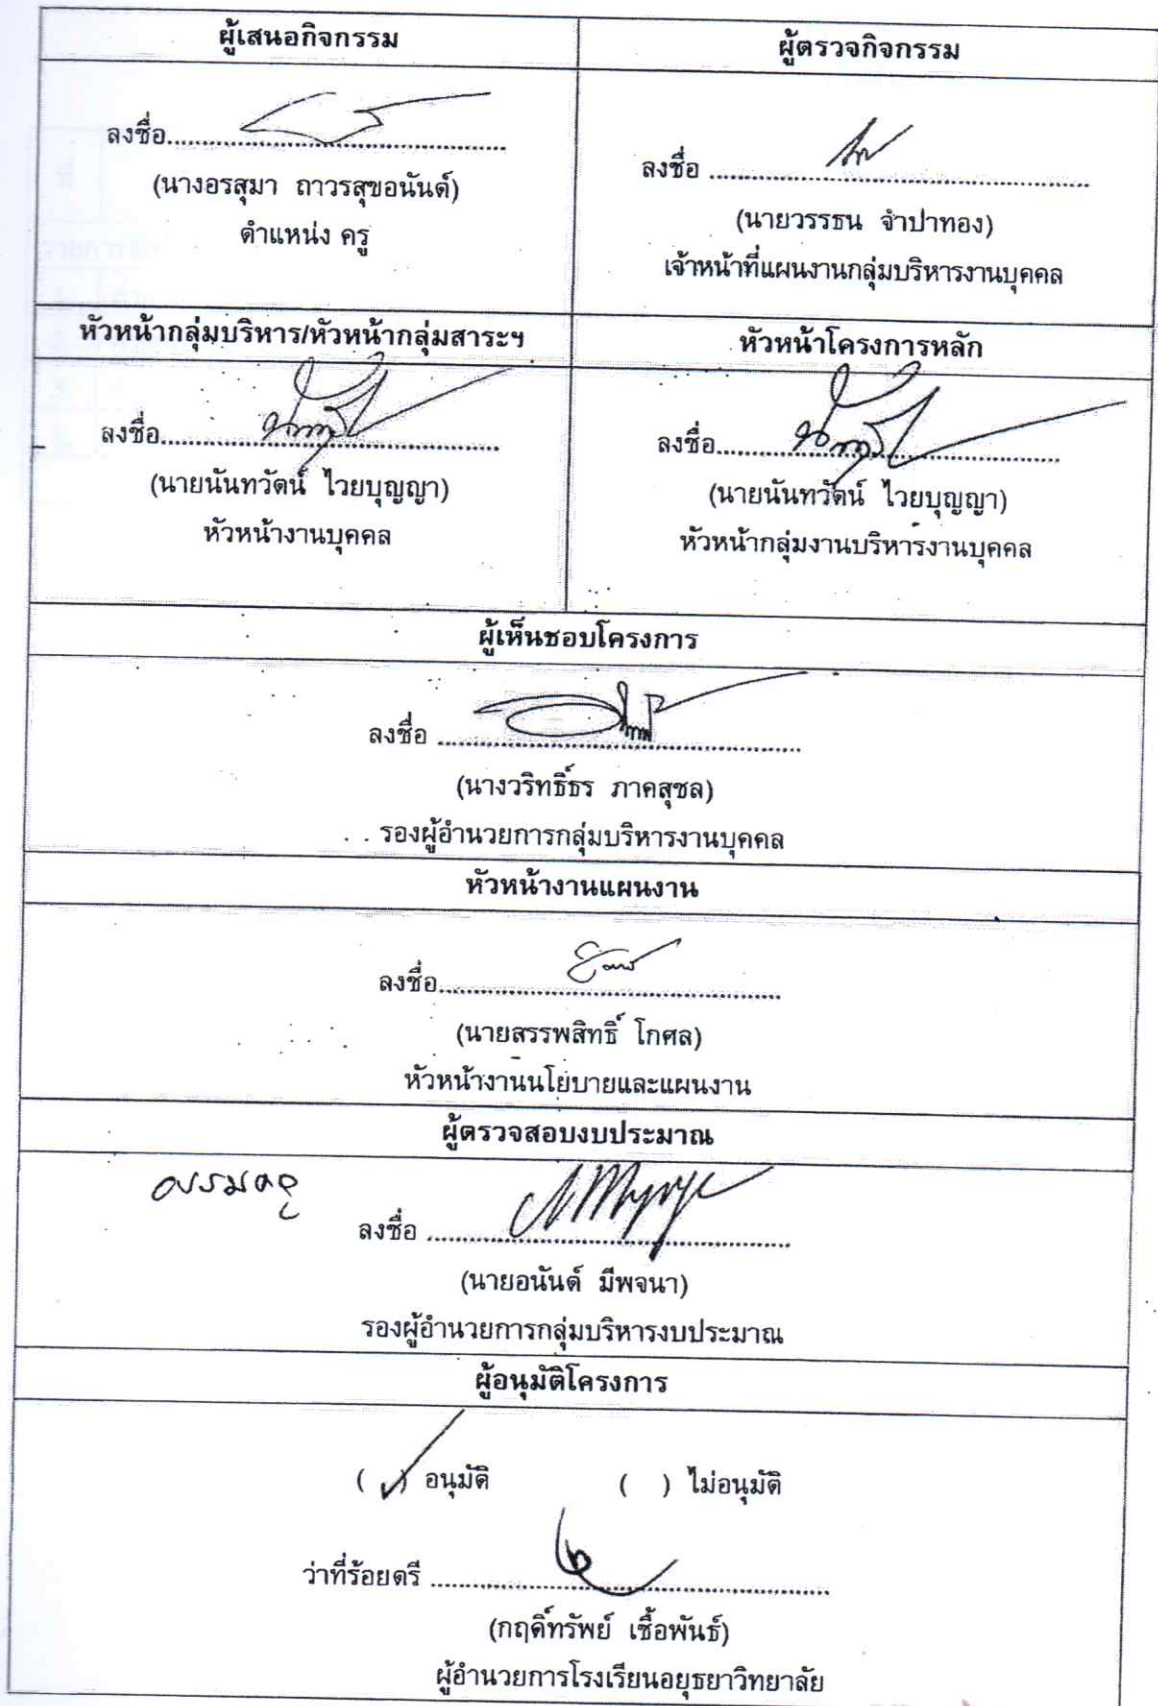 ผู้เสนอกิจกรรม
ลงชื่อ
(นางอรสุมา ถาวรสุขอนันต์)
ตำแหน่ง ครู
ผู้ตรวจกิจกรรม
ลงชื่อ
(นายวรรธน จำปาทอง)
เจ้าหน้าที่แผนงานกลุ่มบริหารงานบุคคล
หัวหน้ากลุ่มบริหาร/หัวหน้ากลุ่มสาระฯ
ลงชื่อ
(นายนันทวัตน์ ไวยบุญญา)
หัวหน้างานบุคคล
หัวหน้าโครงการหลัก
ลงชื่อ
(นายนันทวัตน์ ไวยบุญญา)
หัวหน้ากลุ่มงานบริหารงานบุคคล
ผู้เห็นชอบโครงการ
ลงชื่อ
(นางวริทธิ์ธร ภาคสุชล)
รองผู้อำนวยการกลุ่มบริหารงานบุคคล
หัวหน้างานแผนงาน
ลงชื่อ
(นายสรรพสิทธิ์ โกศล)
หัวหน้างานนโยบายและแผนงาน
ผู้ตรวจสอบงบประมาณ
ลงชื่อ
(นายอนันต์ มีพจนา)
รองผู้อำนวยการกลุ่มบริหารงบประมาณ
ผู้อนุมัติโครงการ
( ✓ ) อนุมัติ ( ) ไม่อนุมัติ
ว่าที่ร้อยตรี
(กฤติ์ทรัพย์ เชื้อพันธ์)
ผู้อำนวยการโรงเรียนอยุธยาวิทยาลัย